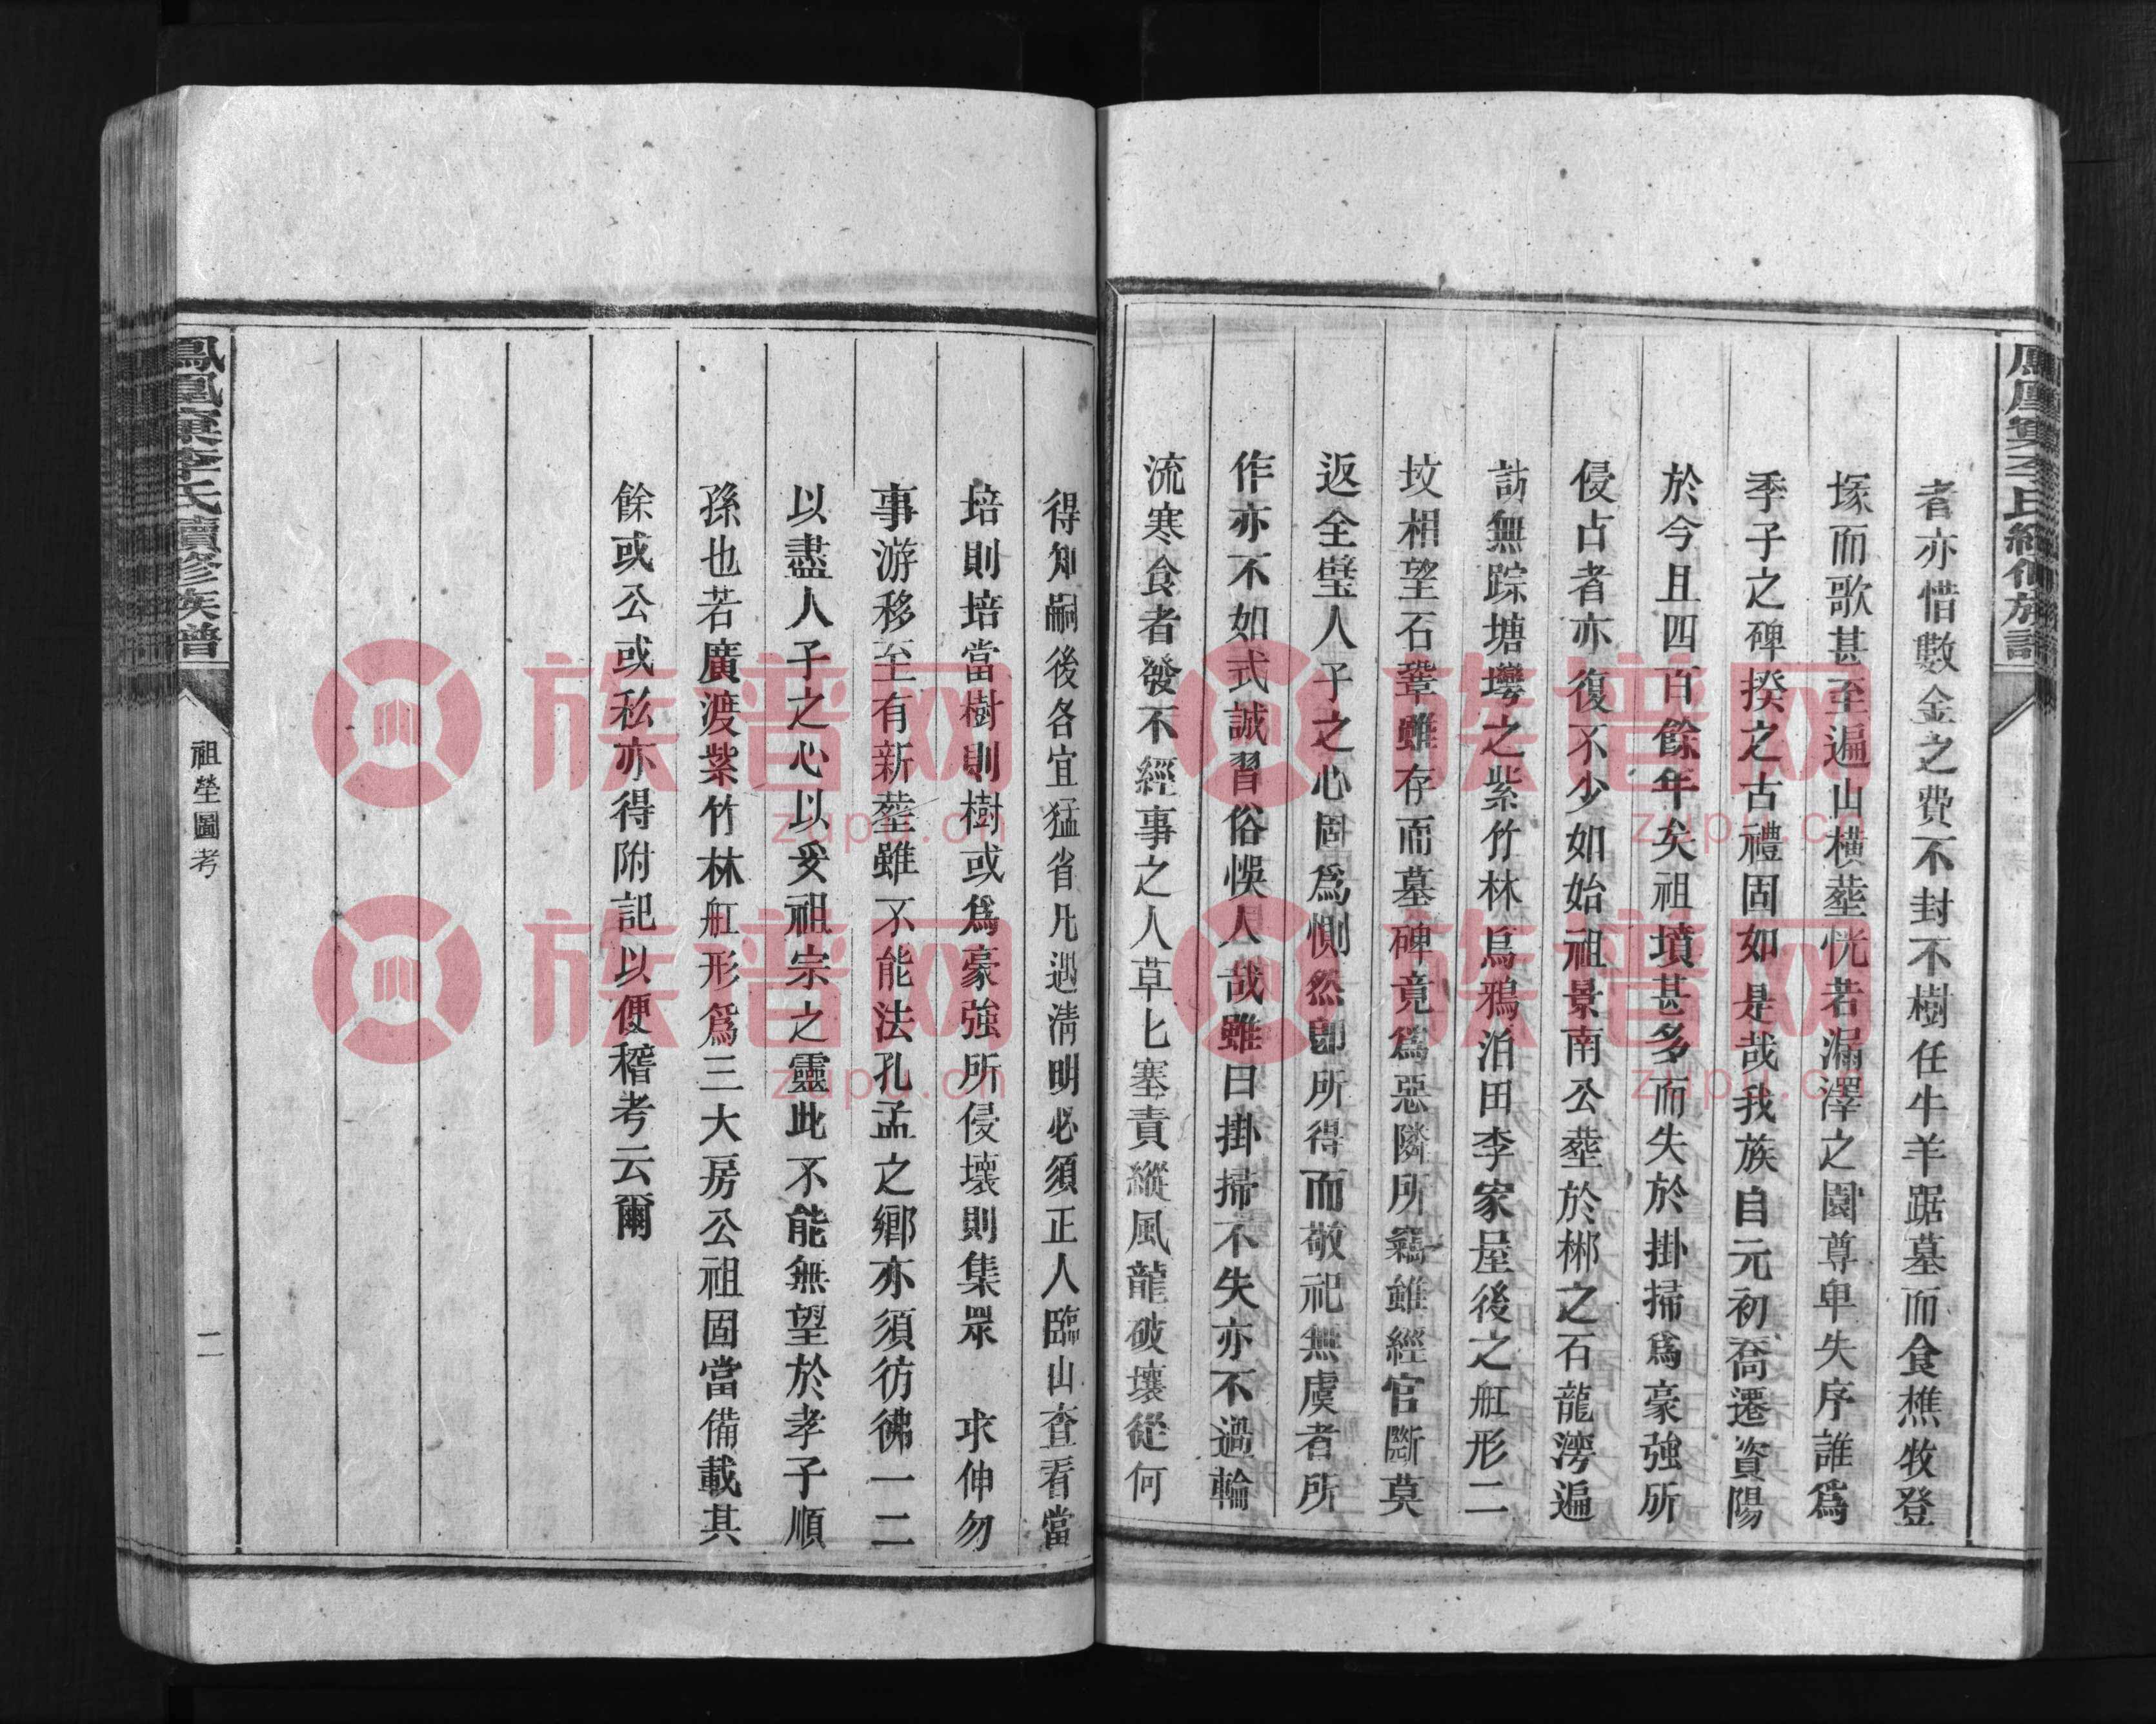 者亦惜數金之費不封不樹任牛羊踞墓而食樵牧登
塚而歌甚至遍山橫塟恍若漏澤之園尊卑失序誰爲
季子之碑揆之古禮固如是哉我族自元初喬遷資陽
於今且四百餘年矣祖墳甚多而失於掛掃爲豪強所
侵占者亦復不少如始祖景南公塟於郴之石龍灣遍
訪無踪塘灣之紫竹林烏鴉泊田李家屋後之舡形二
坟相望石鞏雖存而墓碑竟爲惡隣所竊雖經官斷莫
返全璧人子之心固爲惻然卽所得而敬祀無虞者所
作亦不如式誠習俗悞人哉雖曰掛掃不失亦不過輪
流寒食者發不經事之人草匕塞責縱風龍破壞從何
得知嗣後各宜猛省凡遇淸明必須正人臨山查看當
培則培當樹則樹或爲豪強所侵壞則集眾 求伸勿
事游移至有新塟雖不能法孔孟之鄉亦須彷彿一二
以盡人子之心以妥祖宗之靈此不能無望於孝子順
孫也若廣渡紫竹林舡形爲三大房公祖固當備載其
餘或公或私亦得附記以便稽考云爾
鳳凰寨李氏續修族譜
祖塋圖考
二
族普网
zupu.cn
族普网
zupu.cn
族普网
zupu.cn
族普网
zupu.cn